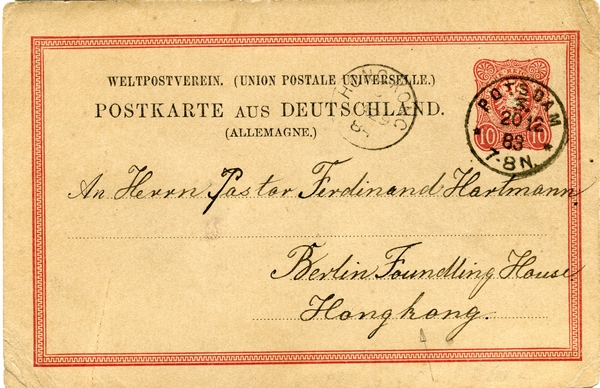 WELTPOSTVEREIN. (UNION POSTALE UNIVERSELLE.)
POSTKARTE AUS DEUTSCHLAND.
(ALLEMAGNE,)
POTSDAM
20 12
83
7-8N.
10 10
HONGKONG
An Herrn Pastor Ferdinand Hartmann
Berlin Foundling House
Hongkong.